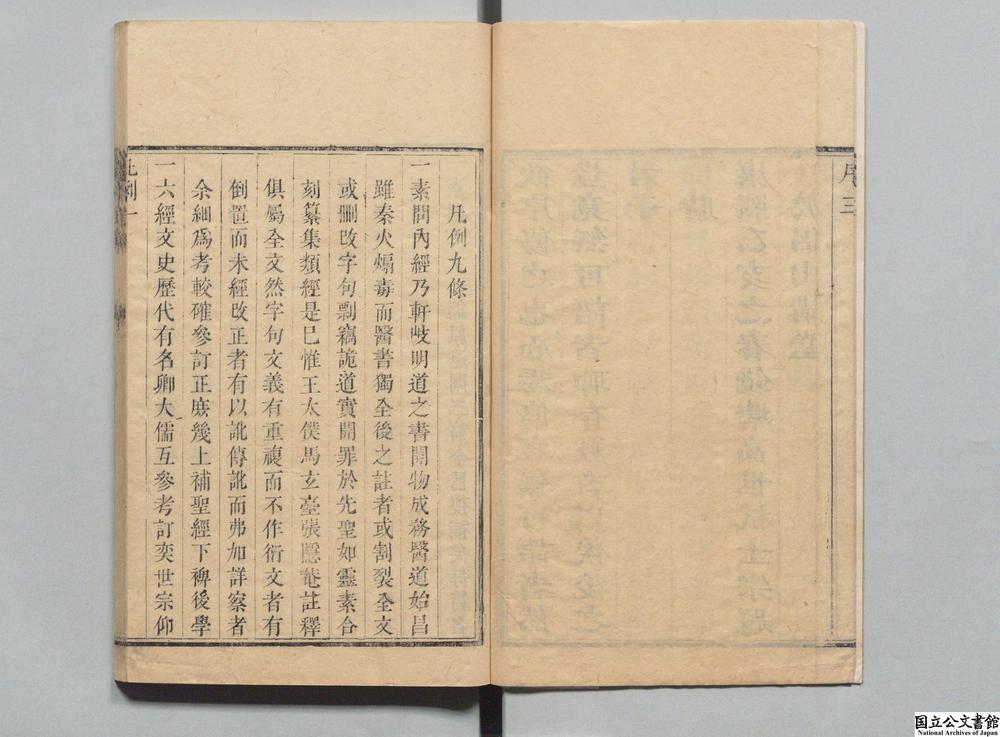 序 三
凡例九條
一素問內經乃軒岐明道之書開物成務醫道始昌
雖秦火煽毒而醫書獨全後之註者或割裂全文
或刪改字句剽竊詭道實開罪於先聖如靈素合
刻纂集類經是已惟王太僕馬玄臺張隱菴註釋
俱屬全文然字句文義有重複而不作衍文者有
倒置而未經改正者有以訛傳訛而弗加詳察者
余細爲考較確參訂正庶幾上補聖經下裨後學
一六經文史歷代有名卿大儒互參考訂奕世宗仰
凡例 一
国立公文書館
National Archives of Japan